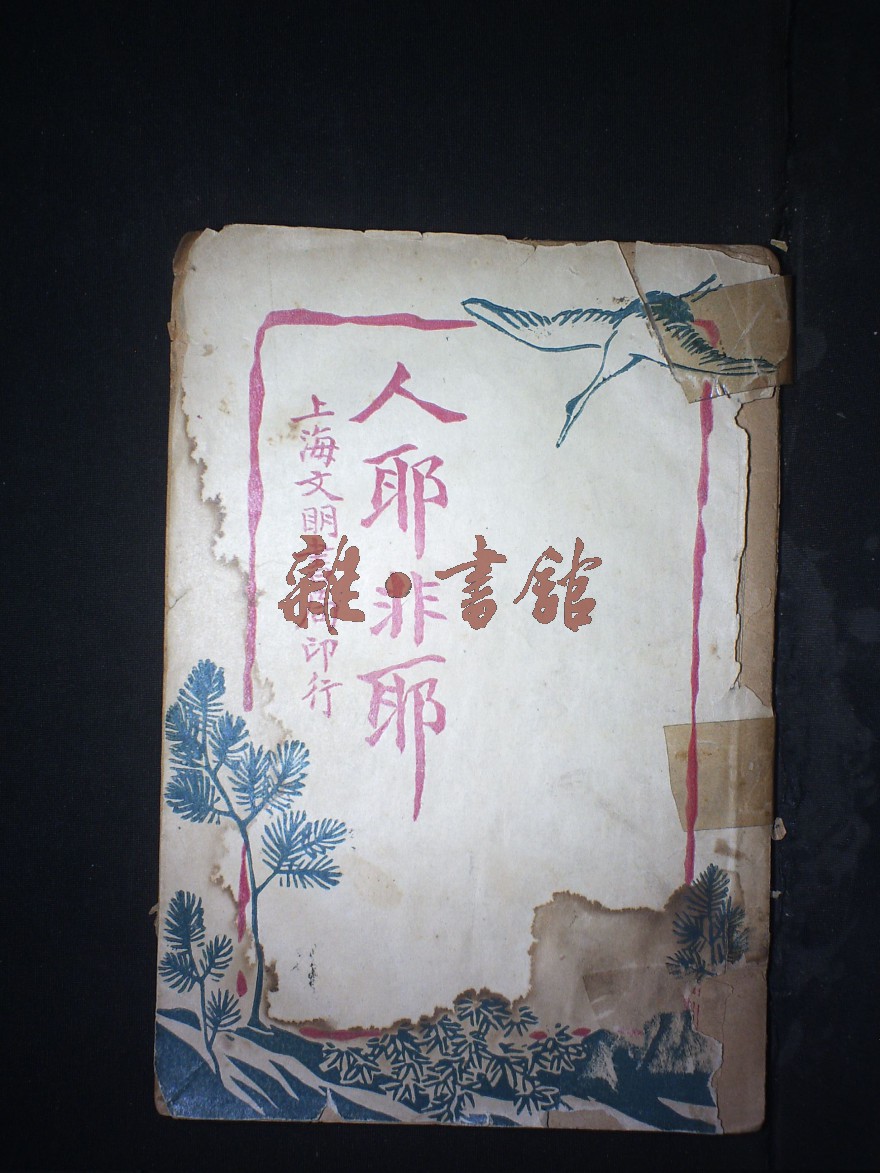 人耶非耶
上海文明書局印行
雜·書館